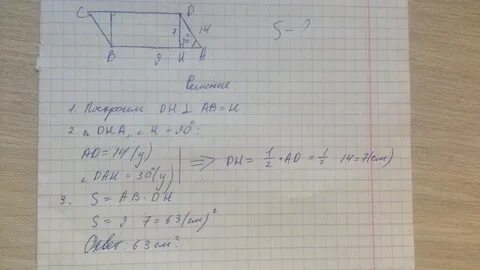 C D
7 14 30°
B 9 H A
S - ?
Решение
1. Построим DH ⊥ AB = H
2. △ DHA, ∠ H = 90°;
AD = 14 (у)
∠ DAH = 30° (у)
⟹ DH = 1/2 · AD = 1/2 · 14 = 7 (см)
3. S = AB · DH
S = 9 · 7 = 63 (см)²
Ответ: 63 см².